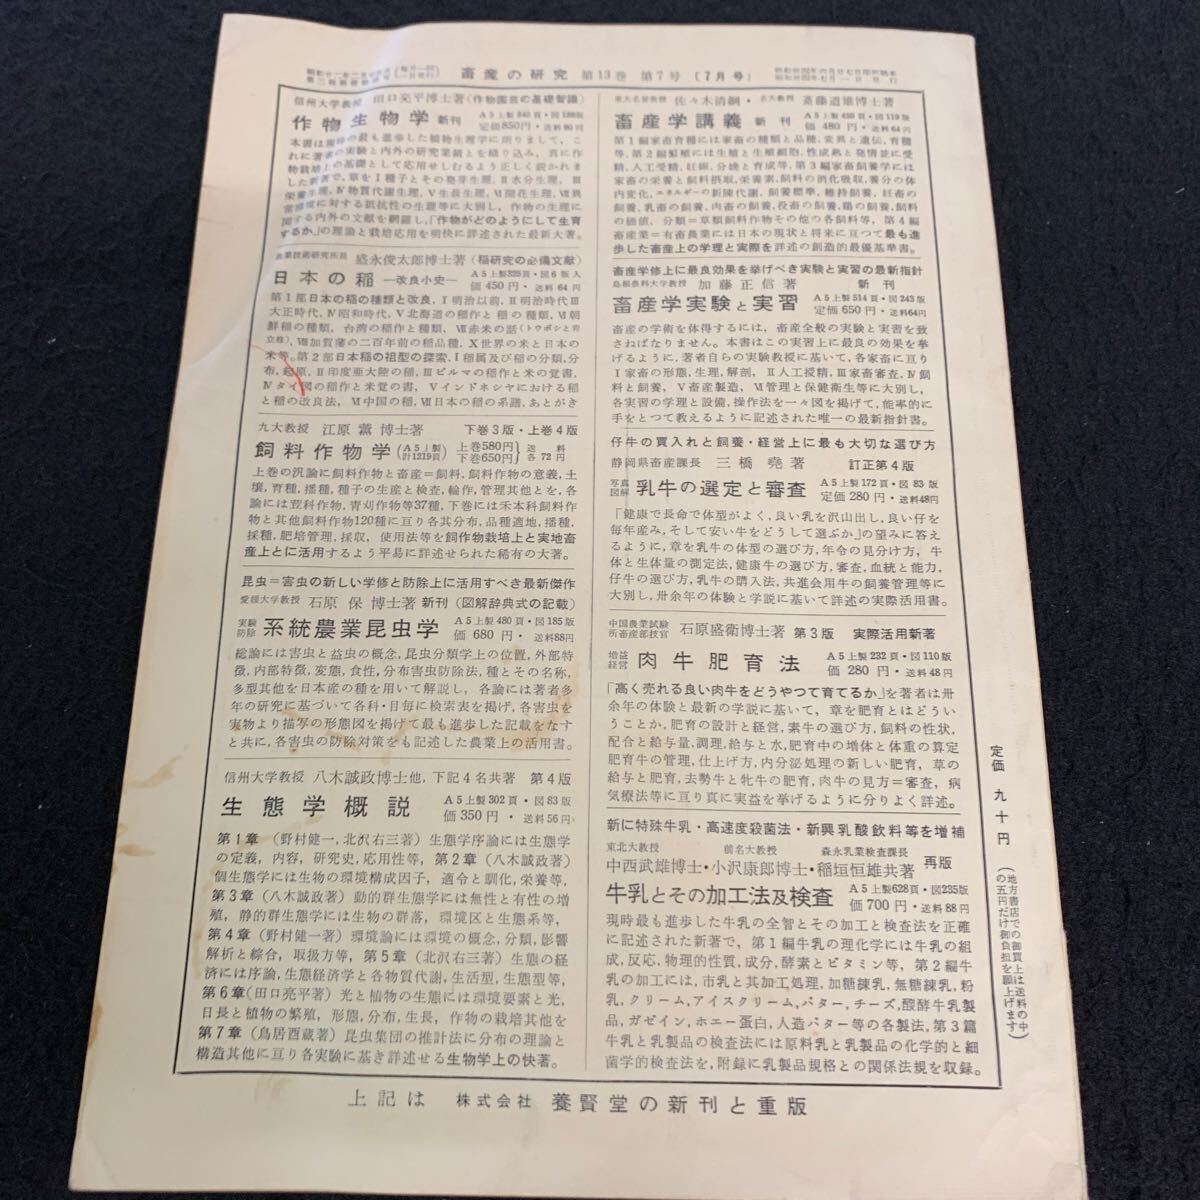 畜産の研究 第13巻 第7号 〔7月号〕
信州大学教授 田口亮平博士著(作物園芸の基礎智識)
作物生物学 新刊
定価850円・送料90円
栄養生理、Ⅳ物質代謝生理、Ⅴ生長生理、Ⅵ開花生理、Ⅶ異
常環境に対する抵抗性の生理等に大別し、作物の生理に
関する内外の文献を網羅し、「作物がどのようにして生育
するか」の理論と栽培応用を明快に詳述された最新大著。
農業技術研究所長 盛永俊太郎博士著(稲研究の必備文献)
日本の稲 ―改良小史―
A5上製325頁・図6版入
価 450円・送料 64円
第1部日本の稲の種類と改良、Ⅰ明治以前、Ⅱ明治時代Ⅲ
大正時代、Ⅳ昭和時代、Ⅴ北海道の稲作と稲の種類、Ⅵ朝
鮮稲の種類、台湾の稲作と種類、Ⅶ赤米の話(トウボシと唐
立稚)、Ⅷ加賀藩の二百年前の稲品種、Ⅹ世界の米と日本の
米等。第2部日本稲の祖型の探索、Ⅰ稲属及び稲の分類、分
布、起原、Ⅱ印度亜大陸の稲、Ⅲビルマの稲作と米の覚書、
Ⅳタイ国の稲作と米覚の書、Ⅴインドネシヤにおける稲
と稲の改良法、Ⅵ中国の稲、Ⅶ日本の稲の系譜、あとがき
九大教授 江原 薫 博士著 下巻3版・上巻4版
飼料作物学 (A5上製 計1219頁) 上巻580円 下巻650円 送料 各72円
上巻の汎論に飼料作物と畜産=飼料、飼料作物の意義、土
壌、育種、播種、種子の生産と検査、輪作、管理其他とを、各
論には荳科作物、青刈作物等37種、下巻には禾本科飼料作
物と其他飼料作物120種に亘り各其分布、品種適地、播種、
採種、肥培管理、採収、使用法等を飼作物栽培上と実地畜
産上とに活用するよう平易に詳述せられた稀有の大著。
昆虫=害虫の新しい学修と防除上に活用すべき最新傑作
愛媛大学教授 石原 保 博士著 新刊(図解辞典式の記載)
実験防除 系統農業昆虫学
A5上製 480頁・図185版
価 680円・送料88円
総論には害虫と益虫の概念、昆虫分類学上の位置、外部特
徴、内部特徴、変態、食性、分布害虫防除法、種とその名称、
多型其他を日本産の種を用いて解説し、各論には著者多
年の研究に基づいて各科・目毎に検索表を掲げ、各害虫を
実物より描写の形態図を掲げて最も進歩した記載をなす
と共に、各害虫の防除対策をも記述した農業上の活用書。
信州大学教授 八木誠政博士他、下記4名共著 第4版
生態学概説
A5上製302頁・図83版
価 350円・送料56円
第1章(野村健一、北沢右三著)生態学序論には生態学
の定義、内容、研究史、応用性等、第2章(八木誠政著)
個生態学には生物の環境構成因子、適合と馴化、栄養等、
第3章(八木誠政著)動的群生態学には無性と有性の増
殖、静的群生態学には生物の群落、環境区と生態系等、
第4章(野村健一著)環境論には環境の概念、分類、影響
解析と綜合、取扱方等、第5章(北沢右三著)生態の経
済には序論、生態経済学と各物質代謝、生活型、生態型等、
第6章(田口亮平著)光と植物の生態には環境要素と光、
日長と植物の繁殖、形態、分布、生長、作物の栽培其他を
第7章(鳥居酉蔵著)昆虫集団の推計法に分布の理論と
構造其他に亘り各実験に基き詳述せる生物学上の快著。
東大名誉教授 佐々木清綱・名大教授 斎藤道雄博士著
畜産学講義 新刊
A5上製 458頁・図119版
価 480円・送料64円
第1編家畜育種には家畜の種類と品種、変異と遺伝、育種
等、第2編繁殖には生殖と生殖細胞、性成熟と発情並に受
精、人工受精、妊娠、分娩と育成等、第3編家畜飼養学には
家畜の栄養と飼料摂取、栄養素、飼料の消化吸収、養分の体
内変化、エネルギーの新陳代謝、飼養標準、維持飼養、妊畜の
飼養、乳畜の飼養、肉畜の飼養、役畜の飼養、鶏の飼養、飼料
の価値、分類=草類飼料作物その他の各飼料等、第4編
畜産業=有畜農業には日本の現状と将来に亘つて最も進
歩した畜産上の学理と実際を詳述の創造的最優基準書。
畜産学修上に最良効果を挙げべき実験と実習の最新指針
島根農科大学教授 加藤正信著 新刊
畜産学実験と実習
A5上製514頁・図243版
定価 650円・送料64円
畜産の学術を体得するには、畜産全般の実験と実習を致
さねばなりません。本書はこの実習上に最良の効果を挙
げるように、著者自らの実験教授に基いて、各家畜に亘り
Ⅰ家畜の形態、生理、解剖 Ⅱ人工授精、Ⅲ家畜審査、Ⅳ飼
料と飼養、Ⅴ畜産製造、Ⅵ管理と保健衛生等に大別し、
各実習の学理と設備、操作法を一々図を掲げて、能率的に
手をとつて教えるように記述された唯一の最新指針書。
仔牛の買入れと飼養・経営上に最も大切な選び方
静岡県畜産課長 三橋 堯著 訂正第4版
写真図解 乳牛の選定と審査
A5上製172頁・図 83版
定価 280円・送料48円
「健康で長命で体型がよく、良い乳を沢山出し、良い仔を
毎年産み、そして安い牛をどうして選ぶか」の望みに答え
るように、章を乳牛の体型の選び方、年令の見分け方、牛
体と生体量の測定法、健康牛の選び方、審査、血統と能力、
仔牛の選び方、乳牛の購入法、共進会用牛の飼養管理等に
大別し、卅余年の体験と学説に基いて詳述の実際活用書。
中国農業試験所畜産部技官 石原盛衛博士著 第3版 実際活用新著
増益経営 肉牛肥育法
A5上製232頁・図110版
価 280円・送料48円
「高く売れる良い肉牛をどうやつて育てるか」を著者は卅
余年の体験と最新の学説に基いて、章を肥育とはどうい
うことか、肥育の設計と経営、素牛の選び方、飼料の性状、
配合と給与量、調理、給与と水、肥育中の増体と体重の算定
肥育牛の管理、仕上げ方、内分泌処理の新しい肥育、草の
給与と肥育、去勢牛と牝牛の肥育、肉牛の見方=審査、病
気療法等に亘り真に実益を挙げるように分りよく詳述。
新に特殊牛乳・高速度殺菌法・新興乳酸飲料等を増補
東北大教授 前名大教授 森永乳業検査課長
中西武雄博士・小沢康郎博士・稲垣恒雄共著 再版
牛乳とその加工法及検査
A5上製628頁・図235版
価 700円・送料88円
現時最も進歩した牛乳の全智とその加工と検査法を正確
に記述された新著で、第1編牛乳の理化学には牛乳の組
成、反応、物理的性質、成分、酵素とビタミン等、第2編牛
乳の加工には、市乳と其加工処理、加糖練乳、無糖練乳、粉
乳、クリーム、アイスクリーム、バター、チーズ、醗酵牛乳製
品、ガゼイン、ホエー蛋白、人造バター等の各製法、第3篇
牛乳と乳製品の検査法には原料乳と乳製品の化学的と細
菌学的検査法を、附録に乳製品規格との関係法規を収録。
定価 九十円
(地方書店での御買上は送料の中の五円だけ御負担を願上げます)
上記は 株式会社 養賢堂の新刊と重版